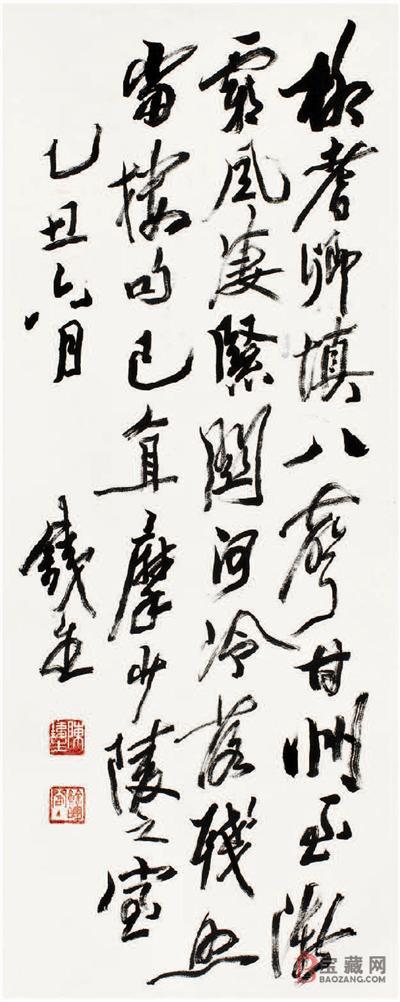 柳耆卿填八聲甘州至漸
霜風凄緊關河冷落殘照
當樓句已直摩少陵之室
己丑六月
鐵
宝藏网
BAOZANG.COM